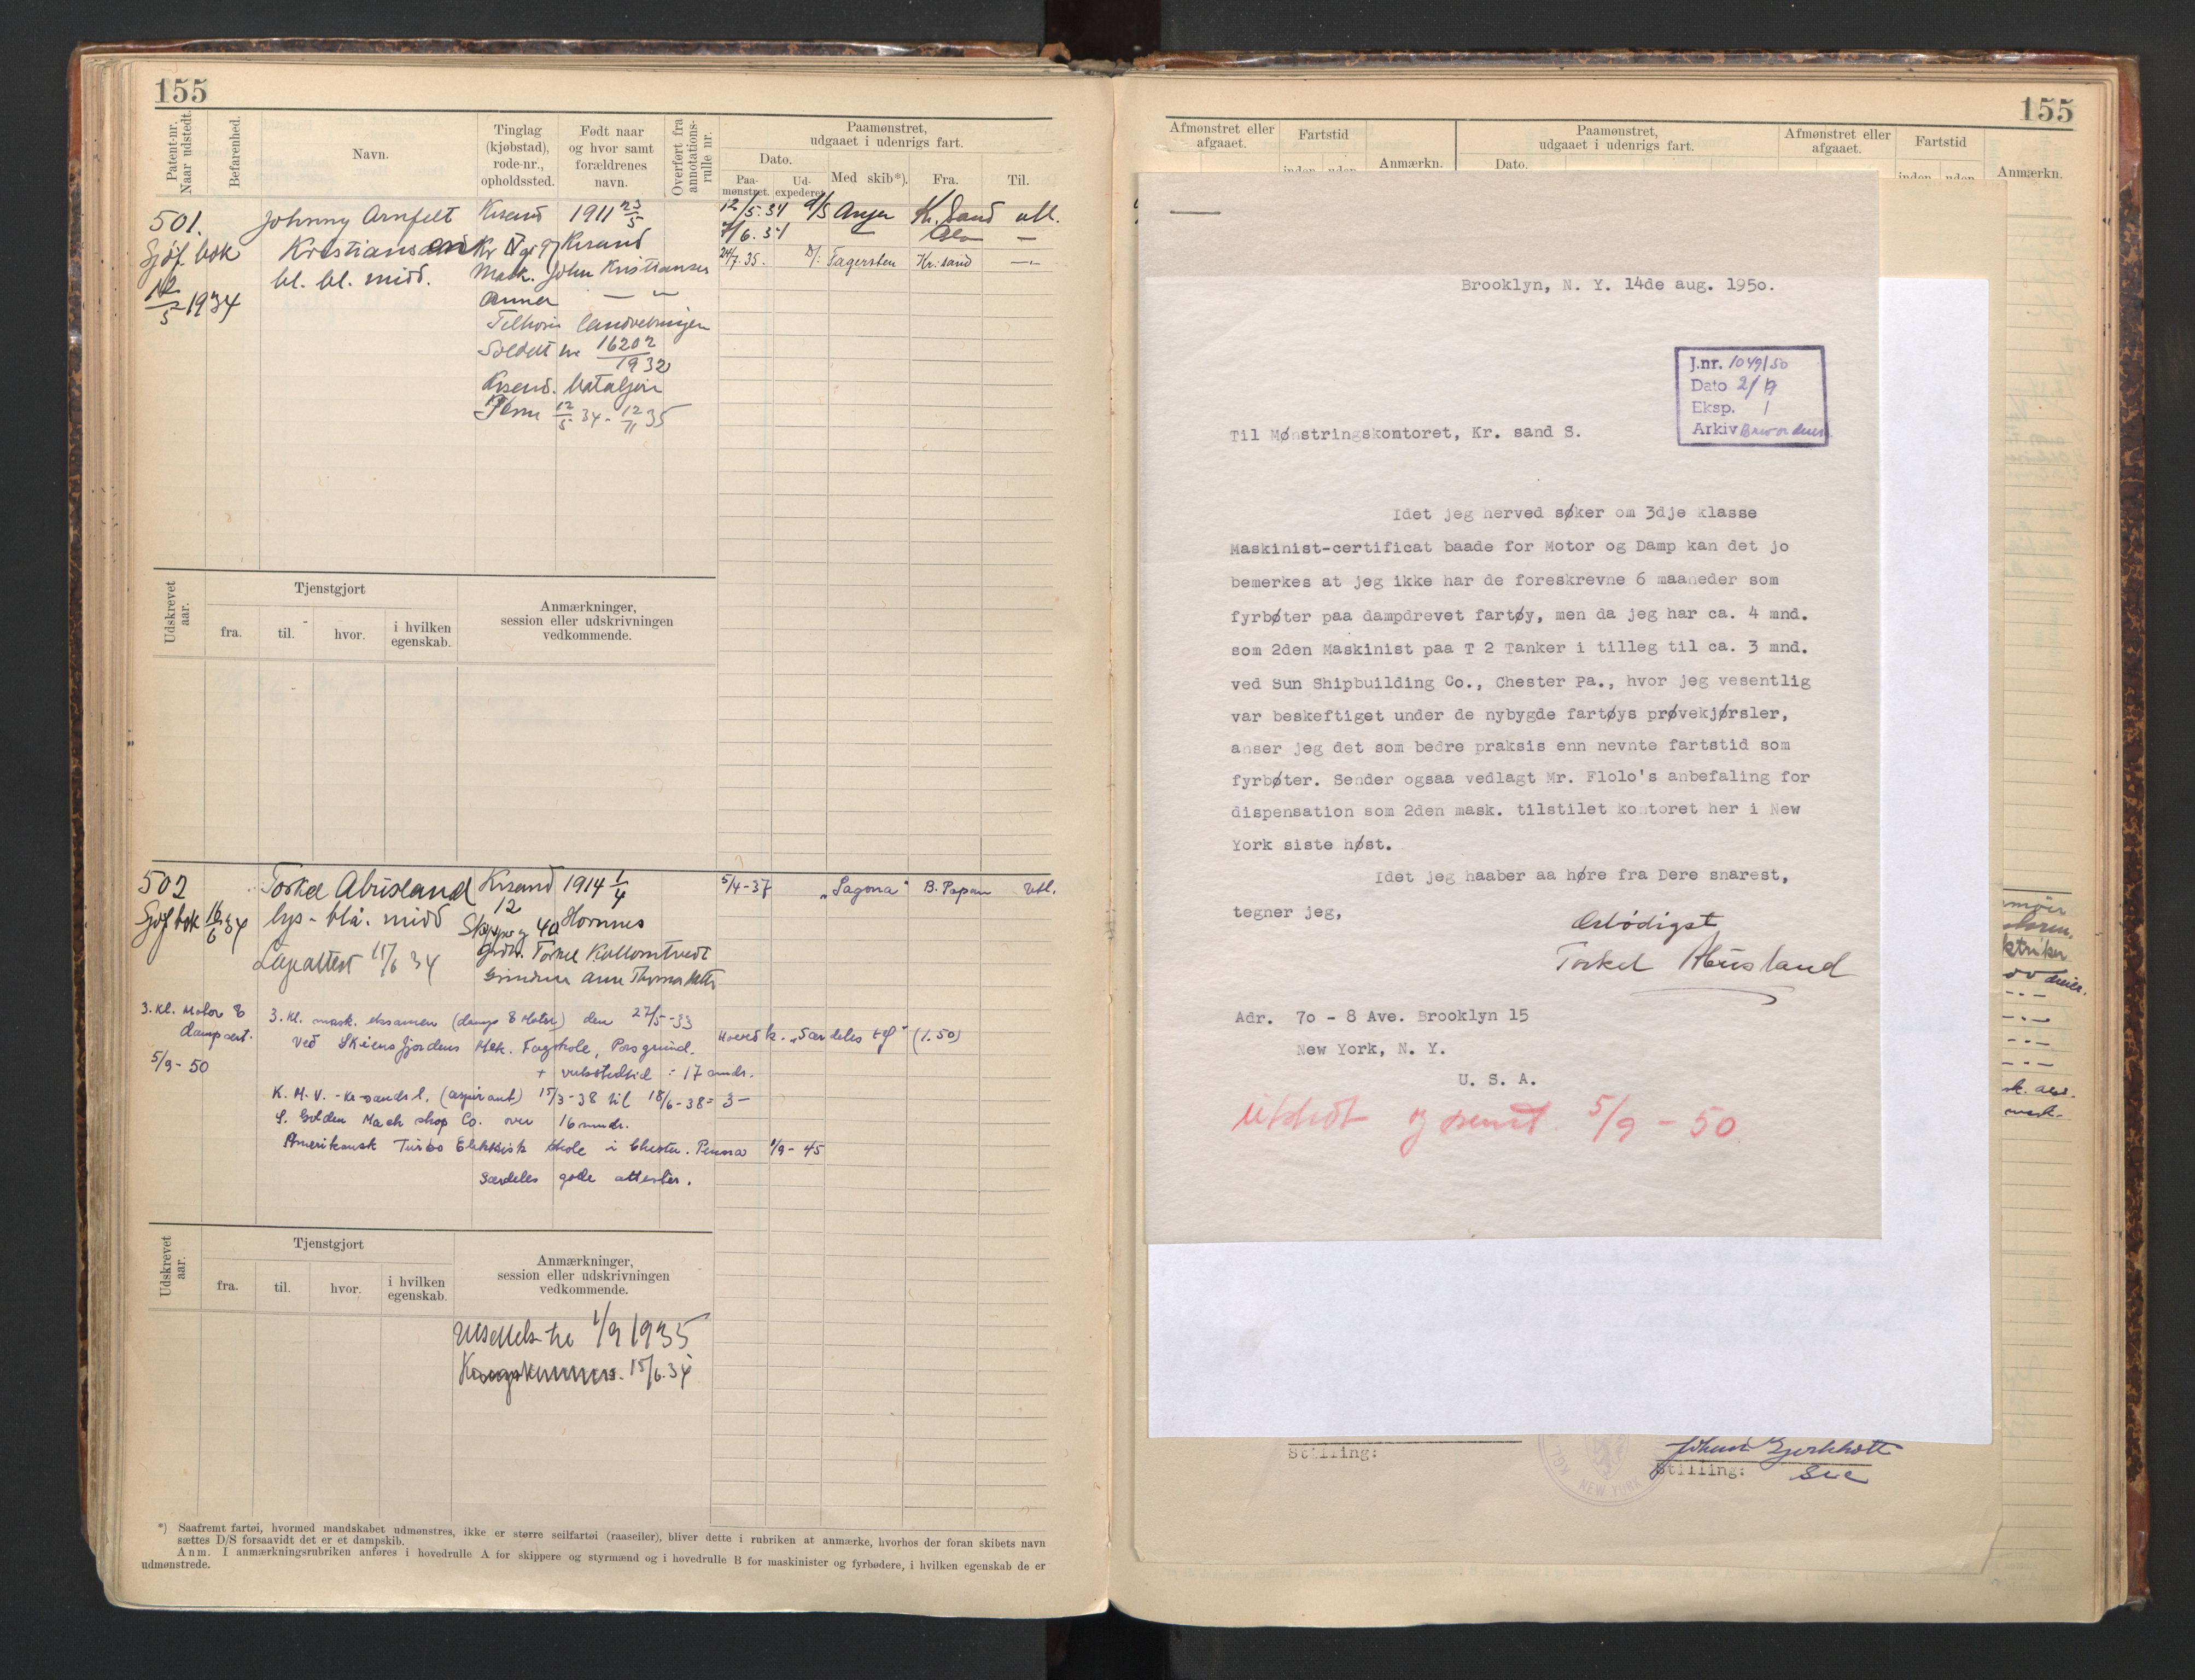 155
Patent-nr. Naar udstedt.
Befarenhed.
Navn.
Tinglag (kjøbstad), rode-nr., opholdssted.
Født naar og hvor samt forældrenes navn.
Overført fra annotations-rulle nr.
Paamønstret, udgaaet i udenrigs fart.
Dato.
Paa-mønstret.
Ud-expederet
Med skib*).
Fra.
Til.
501. Johnny Arnfelt Krsand 1911 23/5
12/5.34 Anja Kr.sand utl.
Sjøf. bok Kristiansen Krsand
7/6.34 Oslo —
12/5 1934 bl. bl. midd. Mask. John Kristiansen
24/7.35. Fagersten Kr.sand —"—
Anna — " —
Tilhører landvebningen
Soldat nr 16202/1932
Krsand. bataljon
12/5 34 - 12/11 35
Udskrevet aar.
Tjenstgjort
fra.
til.
hvor.
i hvilken egenskab.
Anmærkninger, session eller udskrivningen vedkommende.
502 Torkel Abusland Krsand 1914 1/4
5/4-37 „Sagona" B. Papan Utl.
Sjøf bok 16/6 34 lys - blå. midd 12 Hornnes
40 Torkel
Lapattest 15/6 34
3. kl. Motor & dampsert.
5/9-50
3. kl. mask. eksamen (damp & Motor) den 27/5-33 Hovedk. „Særdeles tilf" (1.50)
ved Skiensfjordens Mek. Fagskole, Porsgrund.
+ verkstedtid = 17 mndr.
K. M. V. - Kr-sand S. (aspirant) 15/3-38 til 18/6-38 = 3 -
S. Golden Mach shop Co. over 16 mndr.
Amerikansk Turbo Elektrisk skole i Chester. Penna 1/9-45
Særdeles gode attester.
Udskrevet aar.
Tjenstgjort
fra.
til.
hvor.
i hvilken egenskab.
Anmærkninger, session eller udskrivningen vedkommende.
Utsettels til 1/9 1935
15/6.34
*) Saafremt fartøi, hvormed mandskabet udmønstres, ikke er større seilfartøi (raaseiler), bliver dette i rubriken at anmærke, hvorhos der foran skibets navn
sættes D/S forsaavidt det er et dampskib.
Anm. I anmærkningsrubriken anføres i hovedrulle A for skippere og styrmænd og i hovedrulle B for maskinister og fyrbødere, i hvilken egenskab de er
udmønstrede.
155
Afmønstret eller afgaaet.
Fartstid
Anmærkn.
Paamønstret, udgaaet i udenrigs fart.
Dato.
Afmønstret eller afgaaet.
Fartstid
Anmærkn.
inden uden
inden uden
Brooklyn, N. Y. 14de aug. 195o.
J.nr. 1049/50
Dato 2/9
Eksp. 1
Arkiv
Til Mønstringskontoret, Kr. sand S.
Idet jeg herved søker om 3dje klasse
Maskinist-certificat baade for Motor og Damp kan det jo
bemerkes at jeg ikke har de foreskrevne 6 maaneder som
fyrbøter paa dampdrevet fartøy, men da jeg har ca. 4 mnd.
som 2den Maskinist paa T 2 Tanker i tilleg til ca. 3 mnd.
ved Sun Shipbuilding Co., Chester Pa., hvor jeg vesentlig
var beskeftiget under de nybygde fartøys prøvekjørsler,
anser jeg det som bedre praksis enn nevnte fartstid som
fyrbøter. Sender ogsaa vedlagt Mr. Flolo's anbefaling for
dispensation som 2den mask. tilstilet kontoret her i New
York siste høst.
Idet jeg haaber aa høre fra Dere snarest,
tegner jeg,
Ærbødigst
Torkel Abusland
Adr. 7o - 8 Ave. Brooklyn 15
New York, N. Y.
U. S. A.
utstedt og sendt 5/9 - 50
Stilling:
Stilling:
NEW YORK